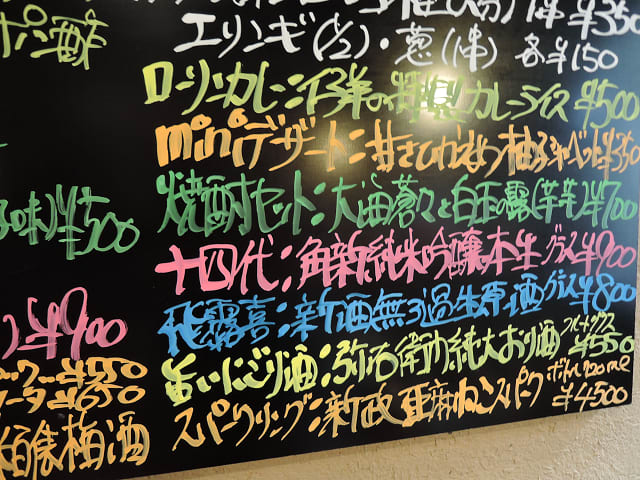 ポン酒
エリンギ(1/2)・葱(1本) 各¥150
特製カレーライス ¥500
miniデザート:甘さひかえめ柚子シャーベット¥350
焼酎セット:大海蒼々と白玉の露(芋芋)¥700
味)¥500
十四代:角新純米吟醸本生グラス¥900
¥900
飛露喜:新酒無ろ過生原酒グラス¥800
¥550
白いにごり酒:弥右衛門純大おり酒 フルートグラス ¥550
¥650
スパークリング:新政 亜麻ねこスパーク ボトル720ml ¥4500
梅酒